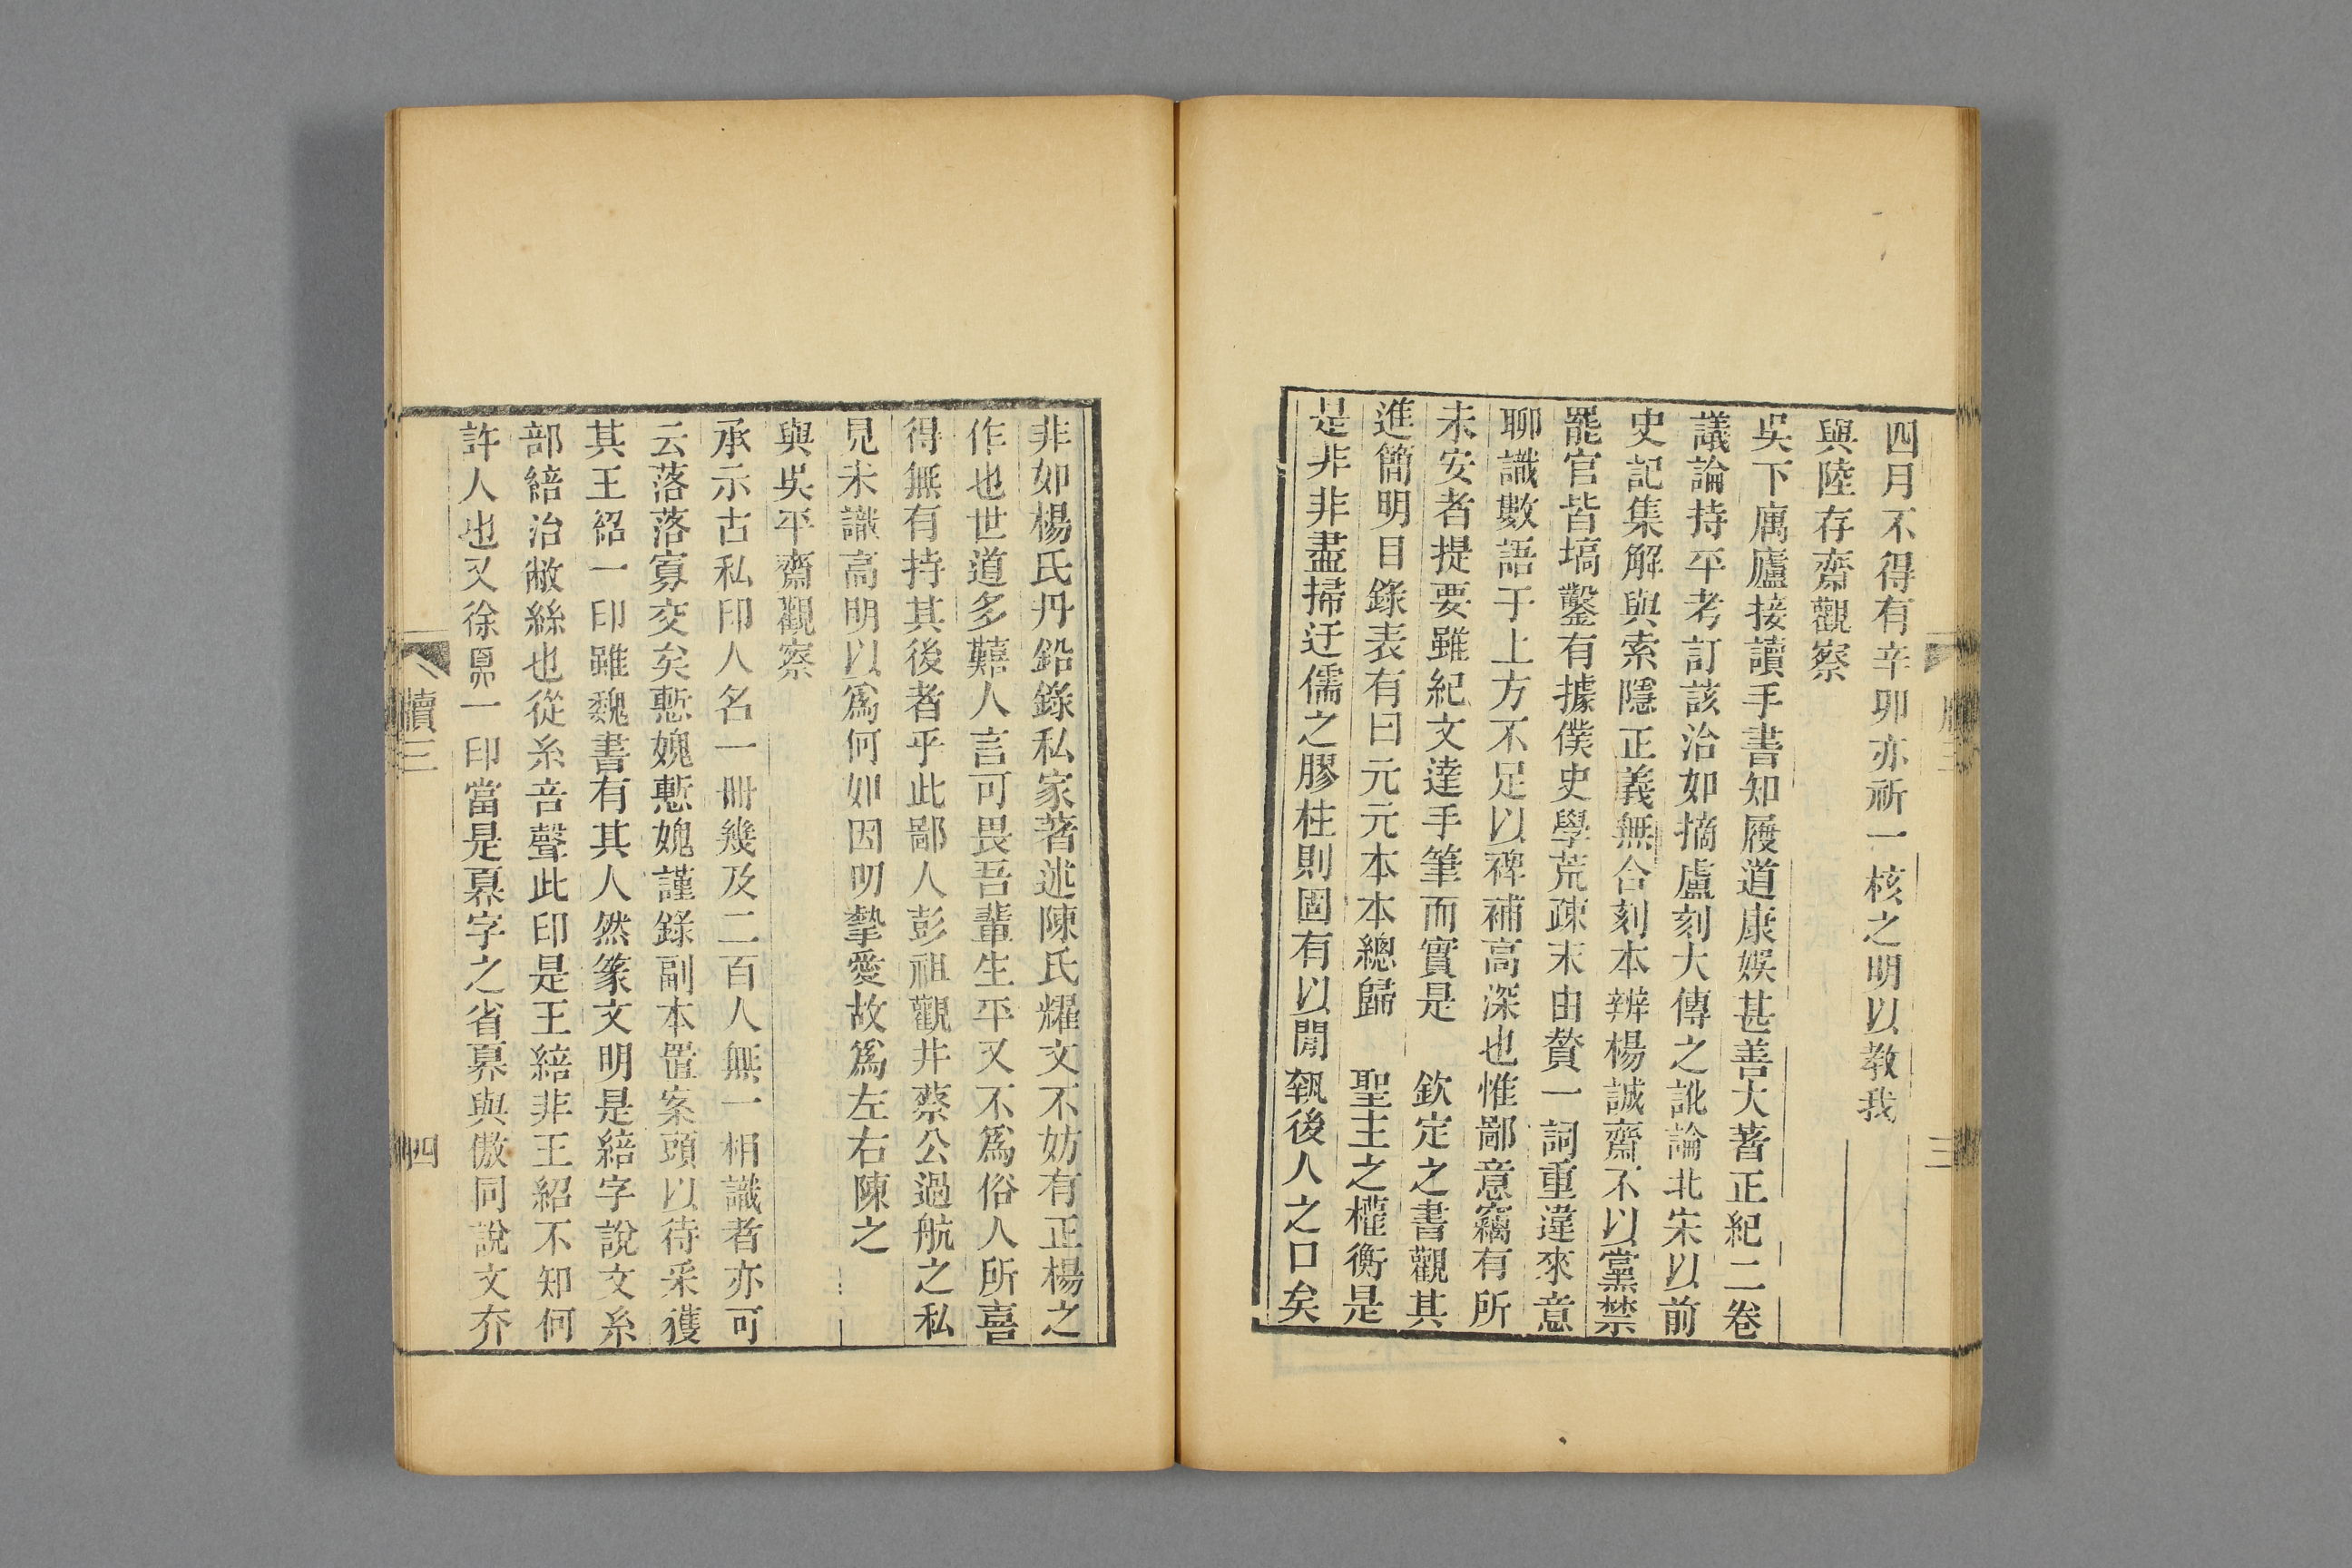 四月不得有辛卯亦祈一核之明以敎我
與陸存齋觀察
吳下厲廬接讀手書知履道康娛甚善大著正紀二卷
議論持平考訂該洽如摘盧刻大傳之訛論北宋以前
史記集解與索隱正義無合刻本辨楊誠齋不以黨禁
罷官皆塙鑿有據僕史學荒疎末由贊一詞重違來意
聊識數語于上方不足以裨補高深也惟鄙意竊有所
未安者提要雖紀文達手筆而實是 欽定之書觀其
進簡明目錄表有曰元元本本總歸 聖主之權衡是
是非非盡掃迂儒之膠柱則固有以閒執後人之口矣
三
非如楊氏丹鉛錄私家著述陳氏耀文不妨有正楊之
作也世道多囏人言可畏吾輩生平又不爲俗人所喜
得無有持其後者乎此鄙人彭祖觀井蔡公過航之私
見未識高明以爲何如因明摯愛故爲左右陳之
與吳平齋觀察
承示古私印人名一冊幾及二百人無一相識者亦可
云落落寡交矣慙媿慙媿謹錄副本置案頭以待采獲
其王紹一印雖魏書有其人然篆文明是綹字說文糸
部綹治敝絲也從糸咅聲此印是王綹非王紹不知何
許人也又徐㬥一印當是奡字之省奡與傲同說文夰
牘三
四